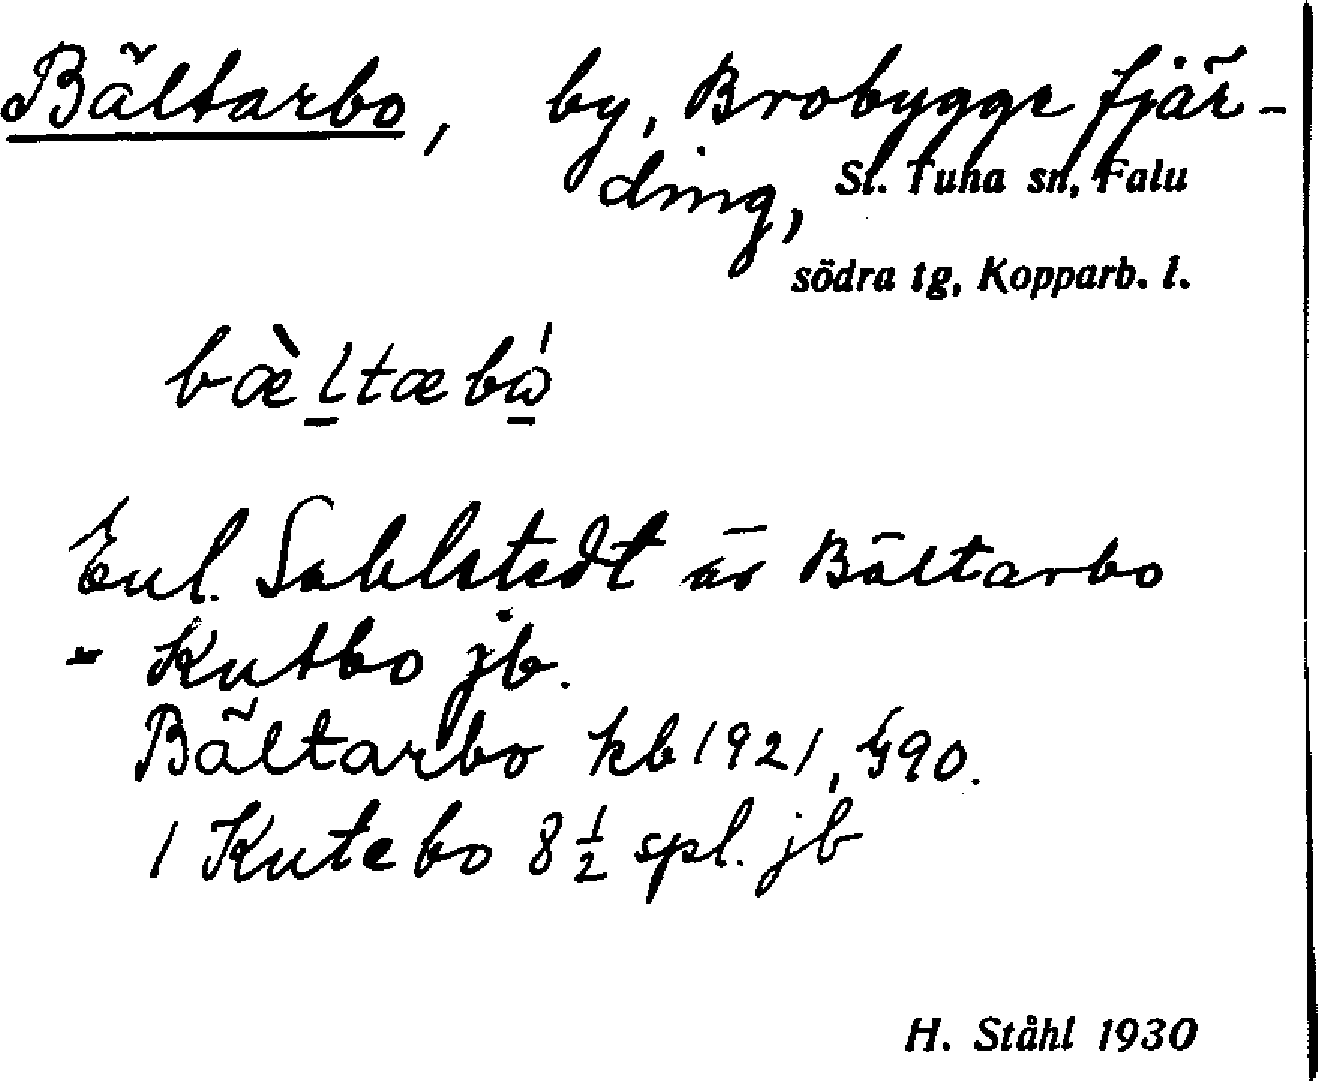 Bältarbo, by, Brobygge fjär-
ding, St. Tuna sn, Falu
södra tg, Kopparb. l.
bæ̀l̠tæbώ̠
Enl. Sahlstedt är Bältarbo
= Kutbo jb.
Bältarbo kb 1921, § 90.
1 Kutebo 8 ½ spl. jb
H. Ståhl 1930